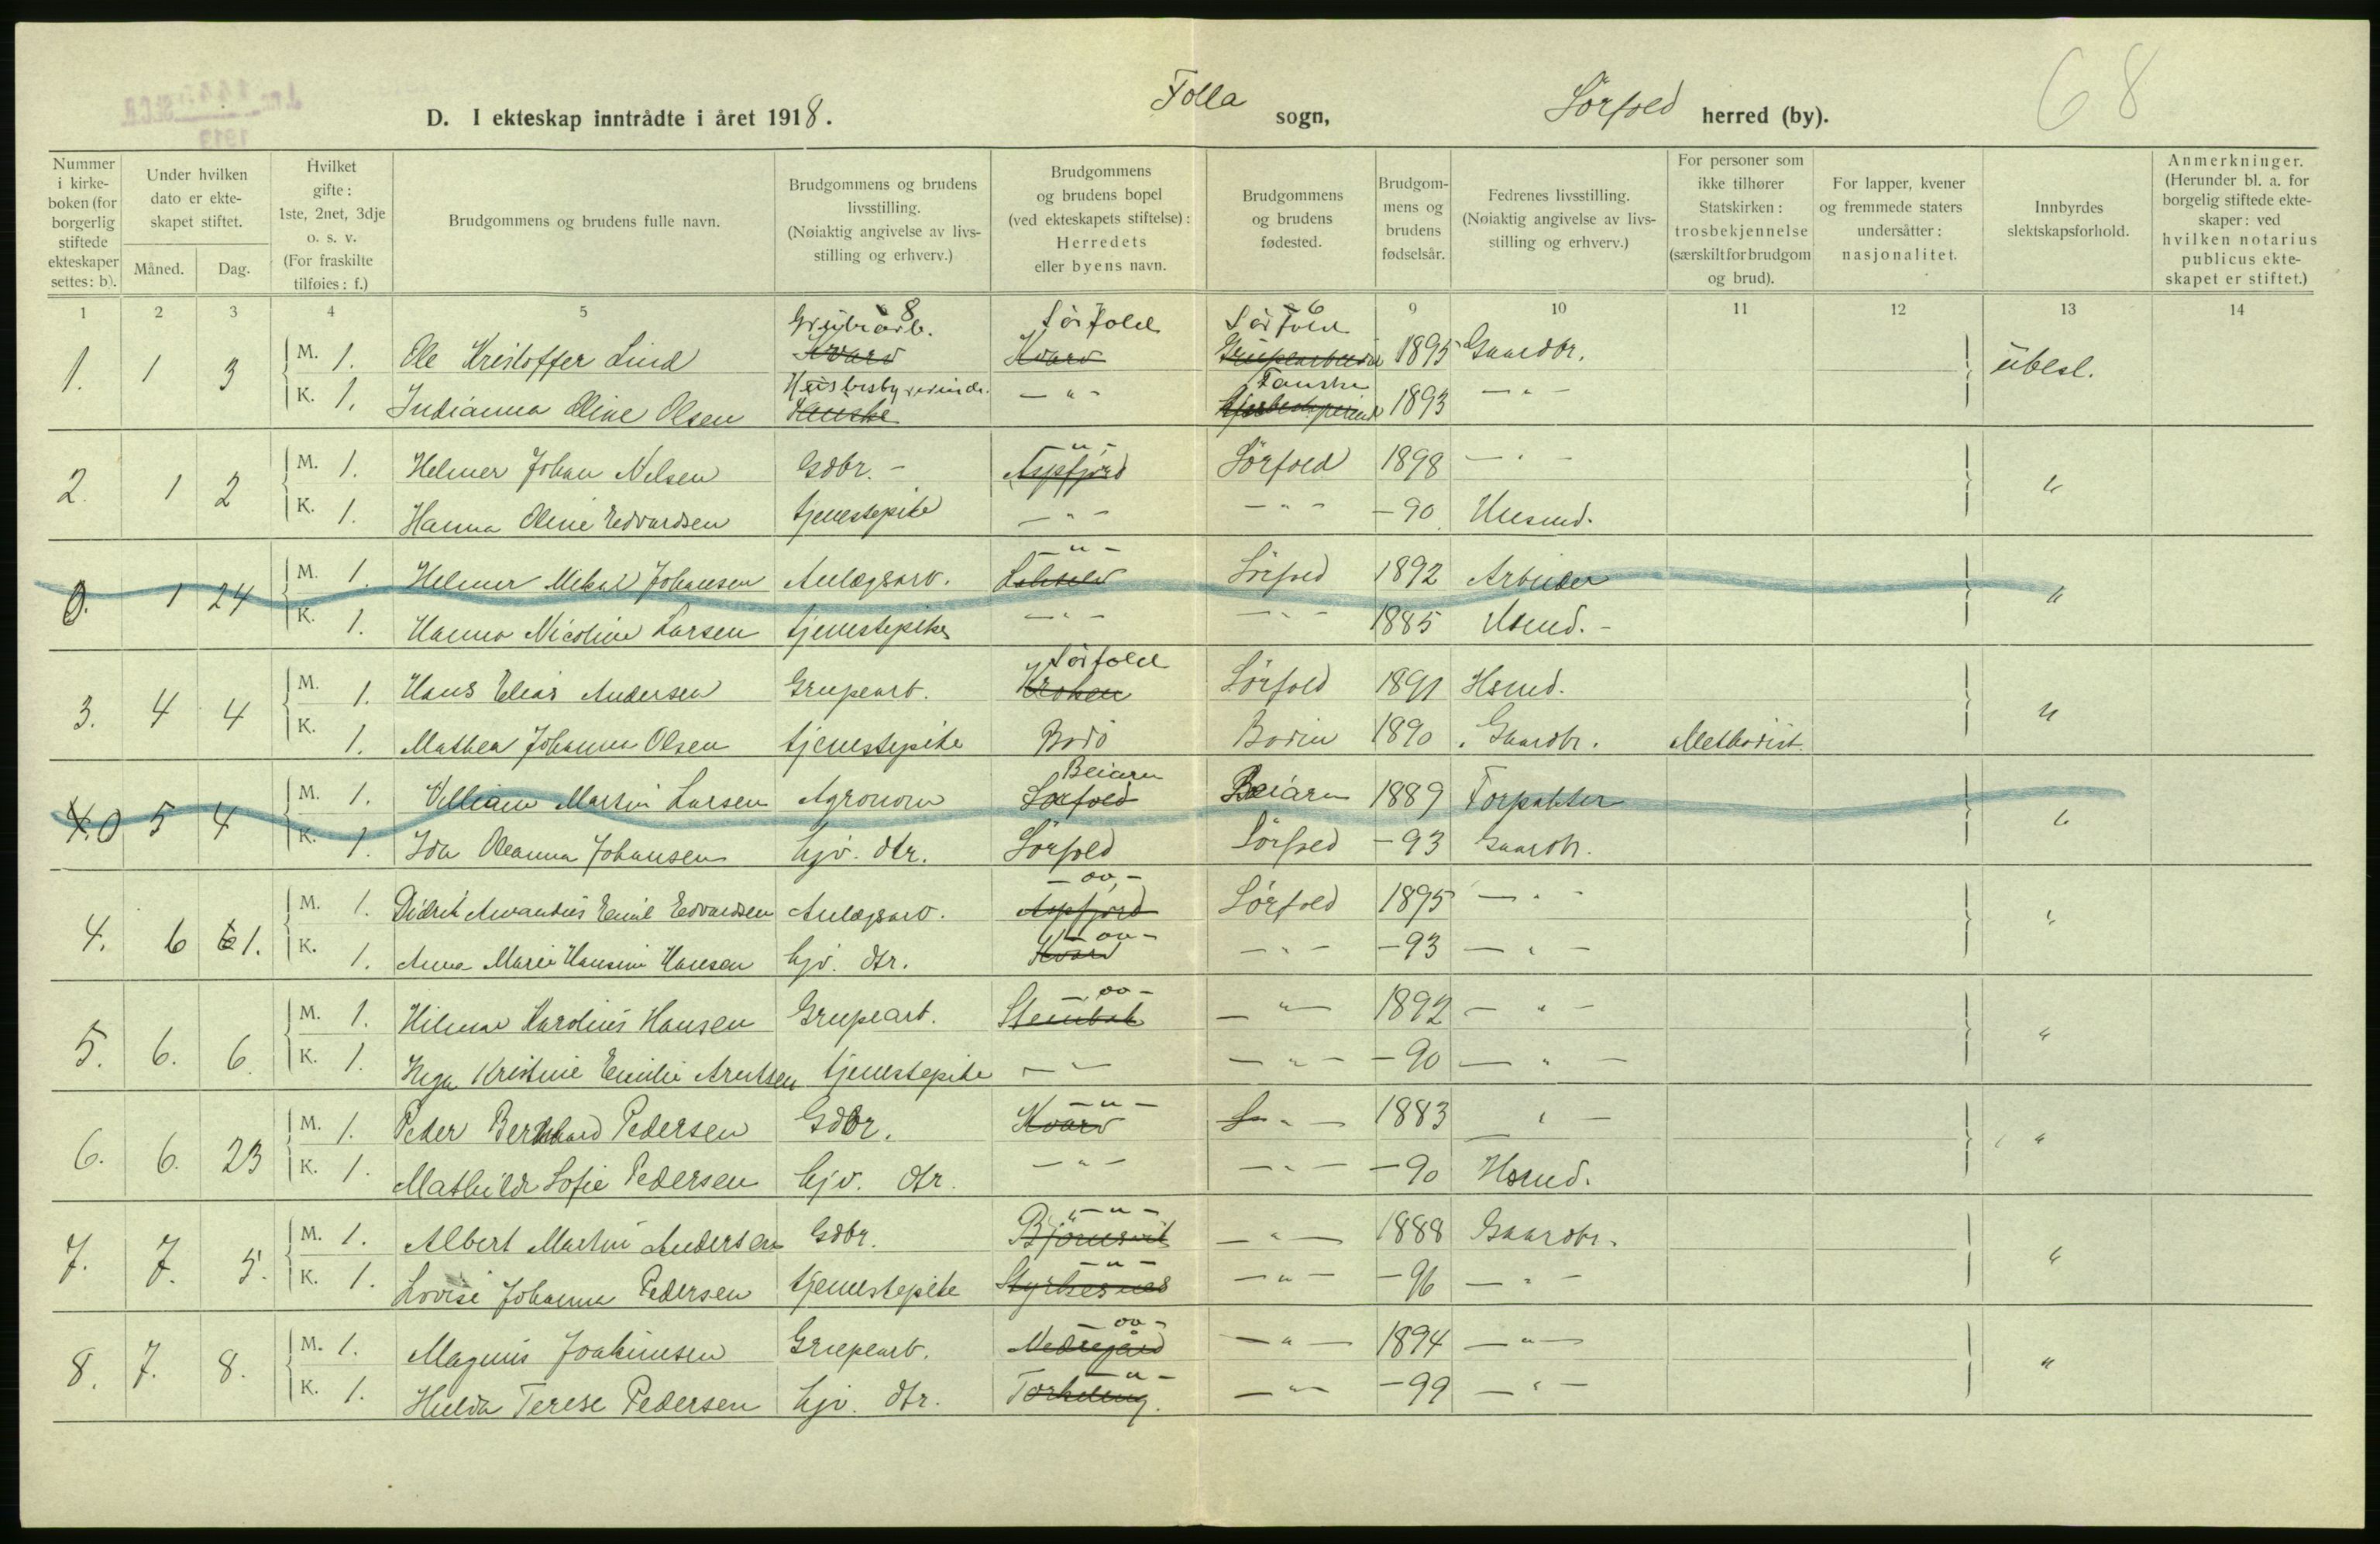 68
D. I ekteskap inntrådte i året 1918. Folla sogn, Sörfold herred (by).
Nummer i kirkeboken (for borgerlig stiftede ekteskaper settes: b).
Under hvilken dato er ekteskapet stiftet.
Måned. Dag.
Hvilket gifte: 1ste, 2net, 3dje o. s. v. (For fraskilte tilføies: f.)
Brudgommens og brudens fulle navn.
Brudgommens og brudens livsstilling. (Nøiaktig angivelse av livsstilling og erhverv.)
Brudgommens og brudens bopel (ved ekteskapets stiftelse): Herredets eller byens navn.
Brudgommens og brudens fødested.
Brudgommens og brudens fødselsår.
Fedrenes livsstilling. (Nøiaktig angivelse av livsstilling og erhverv.)
For personer som ikke tilhører Statskirken: trosbekjennelse (særskilt for brudgom og brud).
For lapper, kvener og fremmede staters undersåtter: nasjonalitet.
Innbyrdes slektskapsforhold.
Anmerkninger. (Herunder bl. a. for borgelig stiftede ekteskaper: ved hvilken notarius publicus ekteskapet er stiftet.)
1 2 3 4 5 8 6 9 10 11 12 13 14
1. 1 3 M. 1. Ole Kristoffer Lind Grubearb. Kvarv Sörfold Kvarv Sörfold Grubearbeider 1895 Gaardbr. ubesl.
K. 1. Indianna Oline Olsen Husbestyrerinde. Fauske — " — Fauske 1893 — " —
2. 1 2 M. 1. Helmer Johan Nilsen Gdbr. – — " — Aspfjord Sörfold 1898 — " — "
K. 1. Hanna Oline Edvardsen tjenestepike — " — — " — –90 Husmd.
0. 1 24 M. 1. Helmer Mikal Johansen Anlægsarb. — " — Sörfold 1892 Arbeider "
K. 1. Hanna Nicoline Larsen tjenestepike — " — — " — 1885 Hsmd. –
3. 4 4 M. 1. Hans Elias Andersen Grupearb. Sörfold Sörfold 1891 Hsmd. "
K. 1. Mathea Johanna Olsen tjenestepike Bodö Bodin 1890 Gaardbr. Methodist.
4. 0 5 4 M. 1. Villiam Martin Larsen Agronom Beiarn Sörfold Beiarn 1889 Forpakter "
K. 1. Ida Oleanna Johansen hjv. dtr. Sörfold Sörfold –93 Gaardbr.
4. 6 1. M. 1. Didrik Amandus Emil Edvardsen Anlægsarb. — oo — Aspfjord Sörfold 1895 — " — "
K. 1. Anna Marie Hansine Hansen hjv. dtr. — oo — Kvarv — " — –93 — " —
5. 6. 6. M. 1. Hilmar Karolius Hansen Grupearb. — oo — Stenbak — " — 1892 — " — "
K. 1. Inga Kristine Emilie Arntsen tjenestepike — " — — " — –90 — " —
6. 6. 23 M. 1. Peder Bernhard Pedersen Gdbr. — " — Kvarv — " — 1883 — " — "
K. 1. Mathilde Sofie Pedersen hjv. dtr. — " — — " — –90 Hsmd.
7. 7. 5. M. 1. Albert Martin Andersen Gdbr. — " — Björnsvik — " — 1888 Gaardbr. "
K. 1. Lovise Johanna Pedersen tjenestepike — " — Styrkesnes — " — –96 — " —
8. 7. 8. M. 1. Magnus Joakimsen Grupearb. — oo — Nedregård — " — 1894 — " — "
K. 1. Hulda Terese Pedersen hjv. dtr. — " — — " — –99 — " —